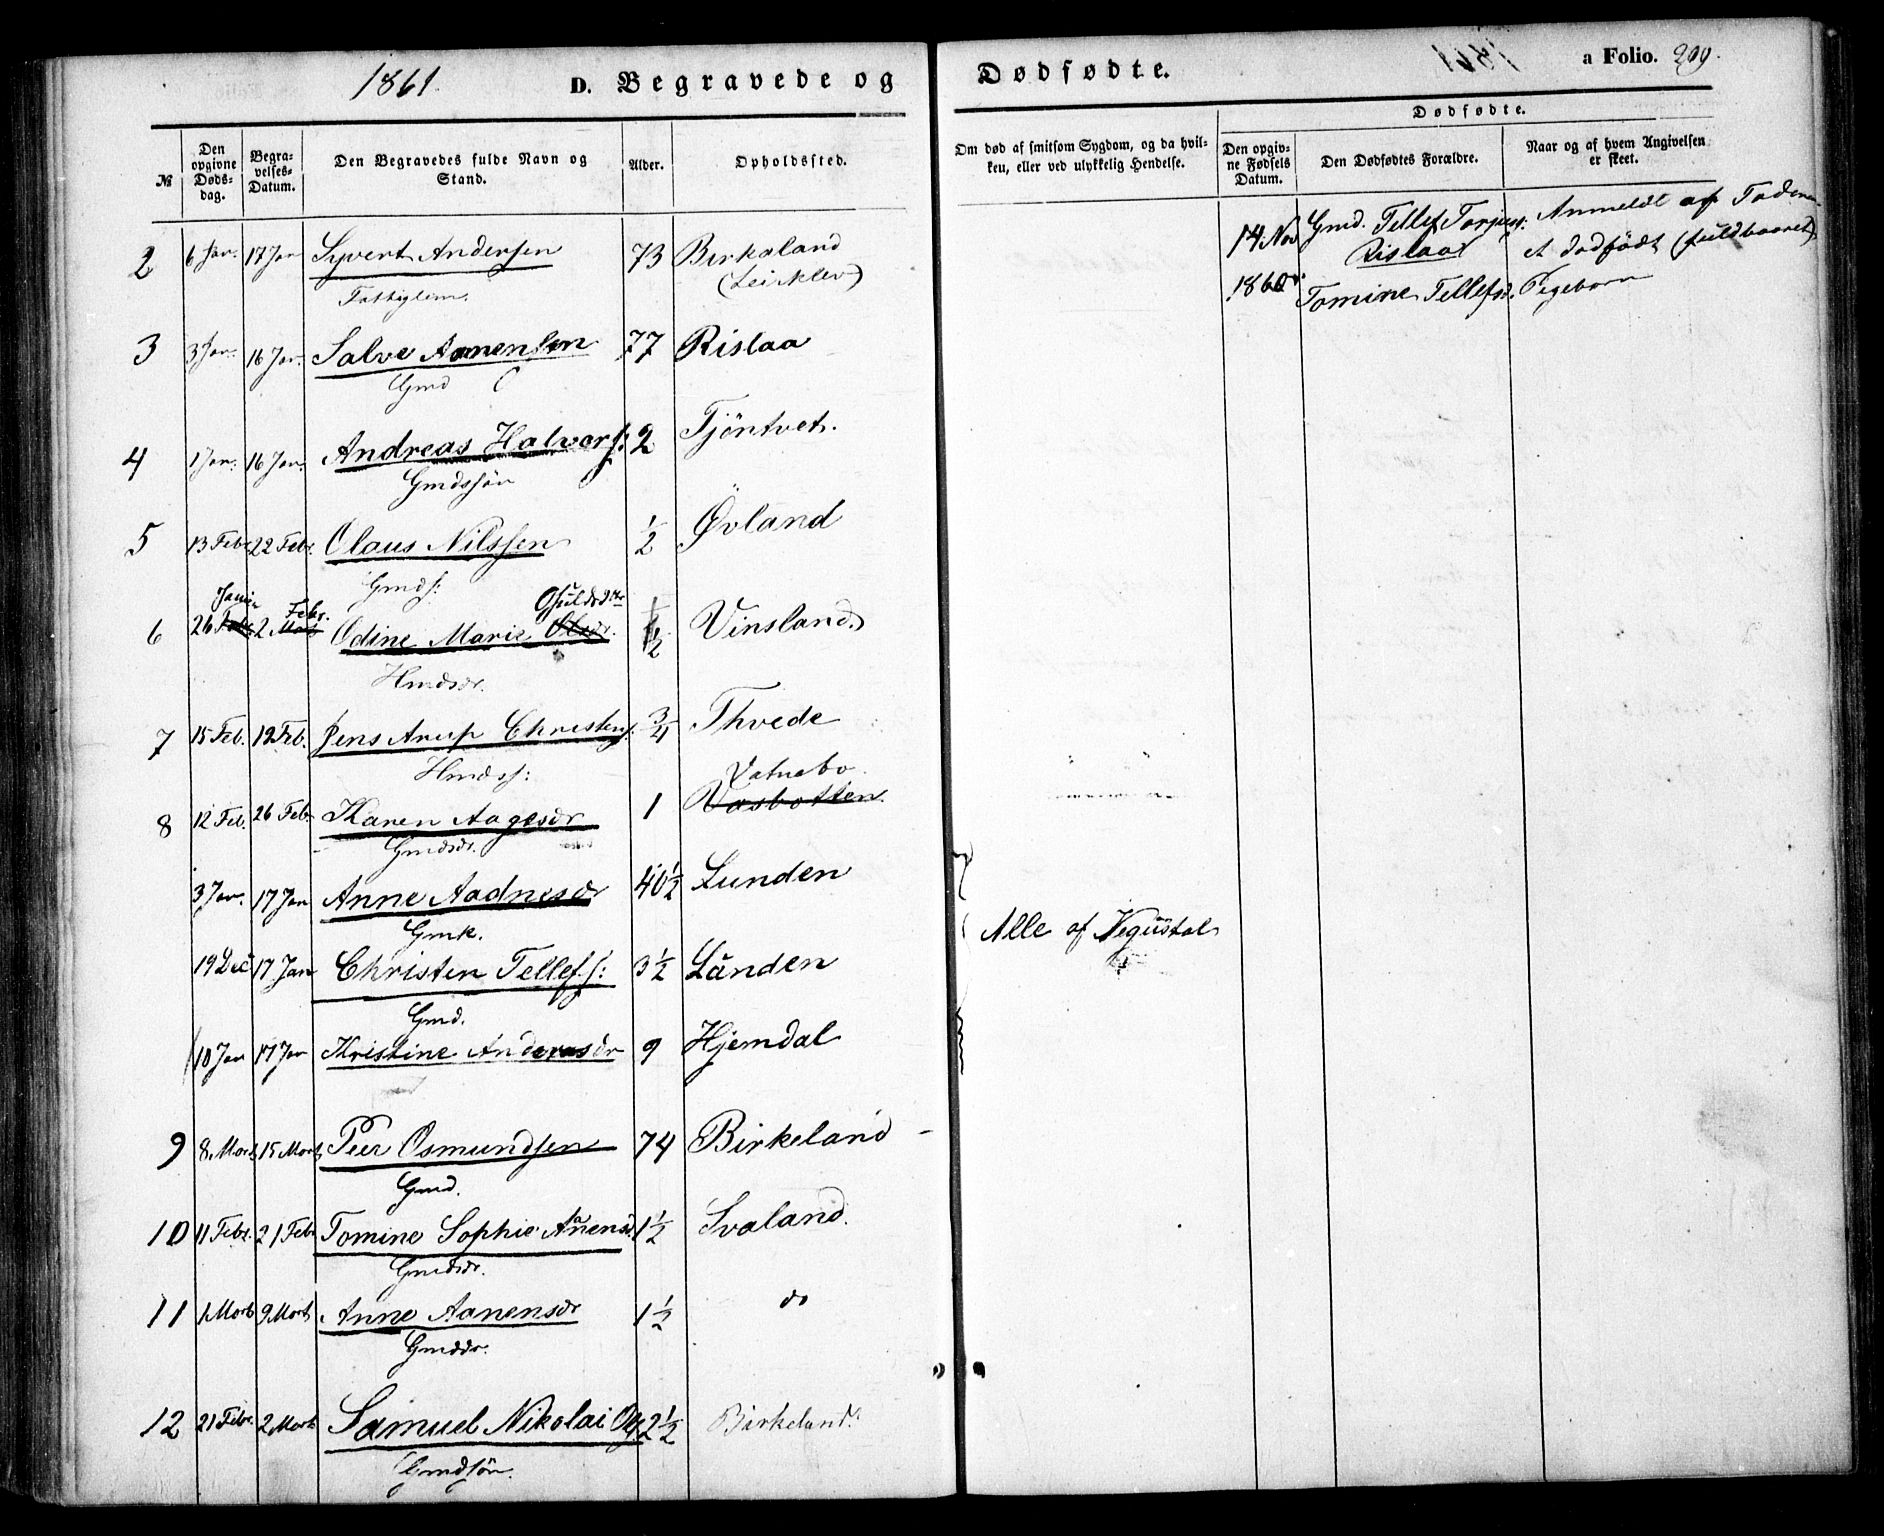 1861. D. Begravede og Dødfødte. a Folio. 209.
№
Den opgivne Døds-dag.
Begra-velses-Datum.
Den Begravedes fulde Navn og Stand.
Alder.
Opholdsted.
Om død af smitsom Sygdom, og da hvil-
ken, eller ved ulykkelig Hendelse.
Dødfødte.
Den opgiv-
ne Fødsels
Datum.
Den Dødfødtes Forældre.
Naar og af hvem Angivelsen
er skeet.
14 Nov Gmd. Tellef Torjuss: Anmeldt af Faderen
Rislaa et dødfødt (fuldbaaret)
1860 Tomine Tellefsd. Pigebarn
2 6 Jan. 17 Jan Syvert Andersen 73 Birkeland
Fattiglem. (Leirklev)
3 3 Jan. 16 Jan. Salve Aanensen 77 Rislaa
Gmd
4 1 Jan. 16 Jan. Andreas Halvors: 2 Tjöntvet.
Gmdssön
5 13 Febr 22 Febr. Olaus Nilssen 1/2 Øvland
Gmds:
Janu Febr. Osuldsdtr
6 26 Febr 2 Mar Odine Marie Olsdr. 1/2 Vinsland
Hmdsdr.
7 15 Feb. 19 Feb. Jens Arup Christens: 3/4 Thvede
Hmdss:
Vatnebo
8 12 Feb. 26 Feb Karen Aagesdr 1 Vasbotten.
Gmdsdr.
3 Jan. 17 Jan Anne Aadnesdr 40 1/2 Lunden
Gmk. Alle af Vegusdal
19 Dec 17 Jan Christen Tellefs: 3 1/2 Lunden
Gmd.
10 Jan 17 Jan Kristine Andersdr 9 Hjemdal
9 8 Mart 15 Mart Peer Osmundsen 74 Birkeland
Gmd.
10 11 Febr. 21 Febr Tomine Sophie Aanensd. 1 1/2 Svaland.
Gmdsdr.
11 1 Mart 9 Mart Anne Aanensdr 1 1/2 do
Gmddr.
12 21 Febr. 2 Mart Samuel Nikolai 2 1/2 Birkeland.
Gmdsön.